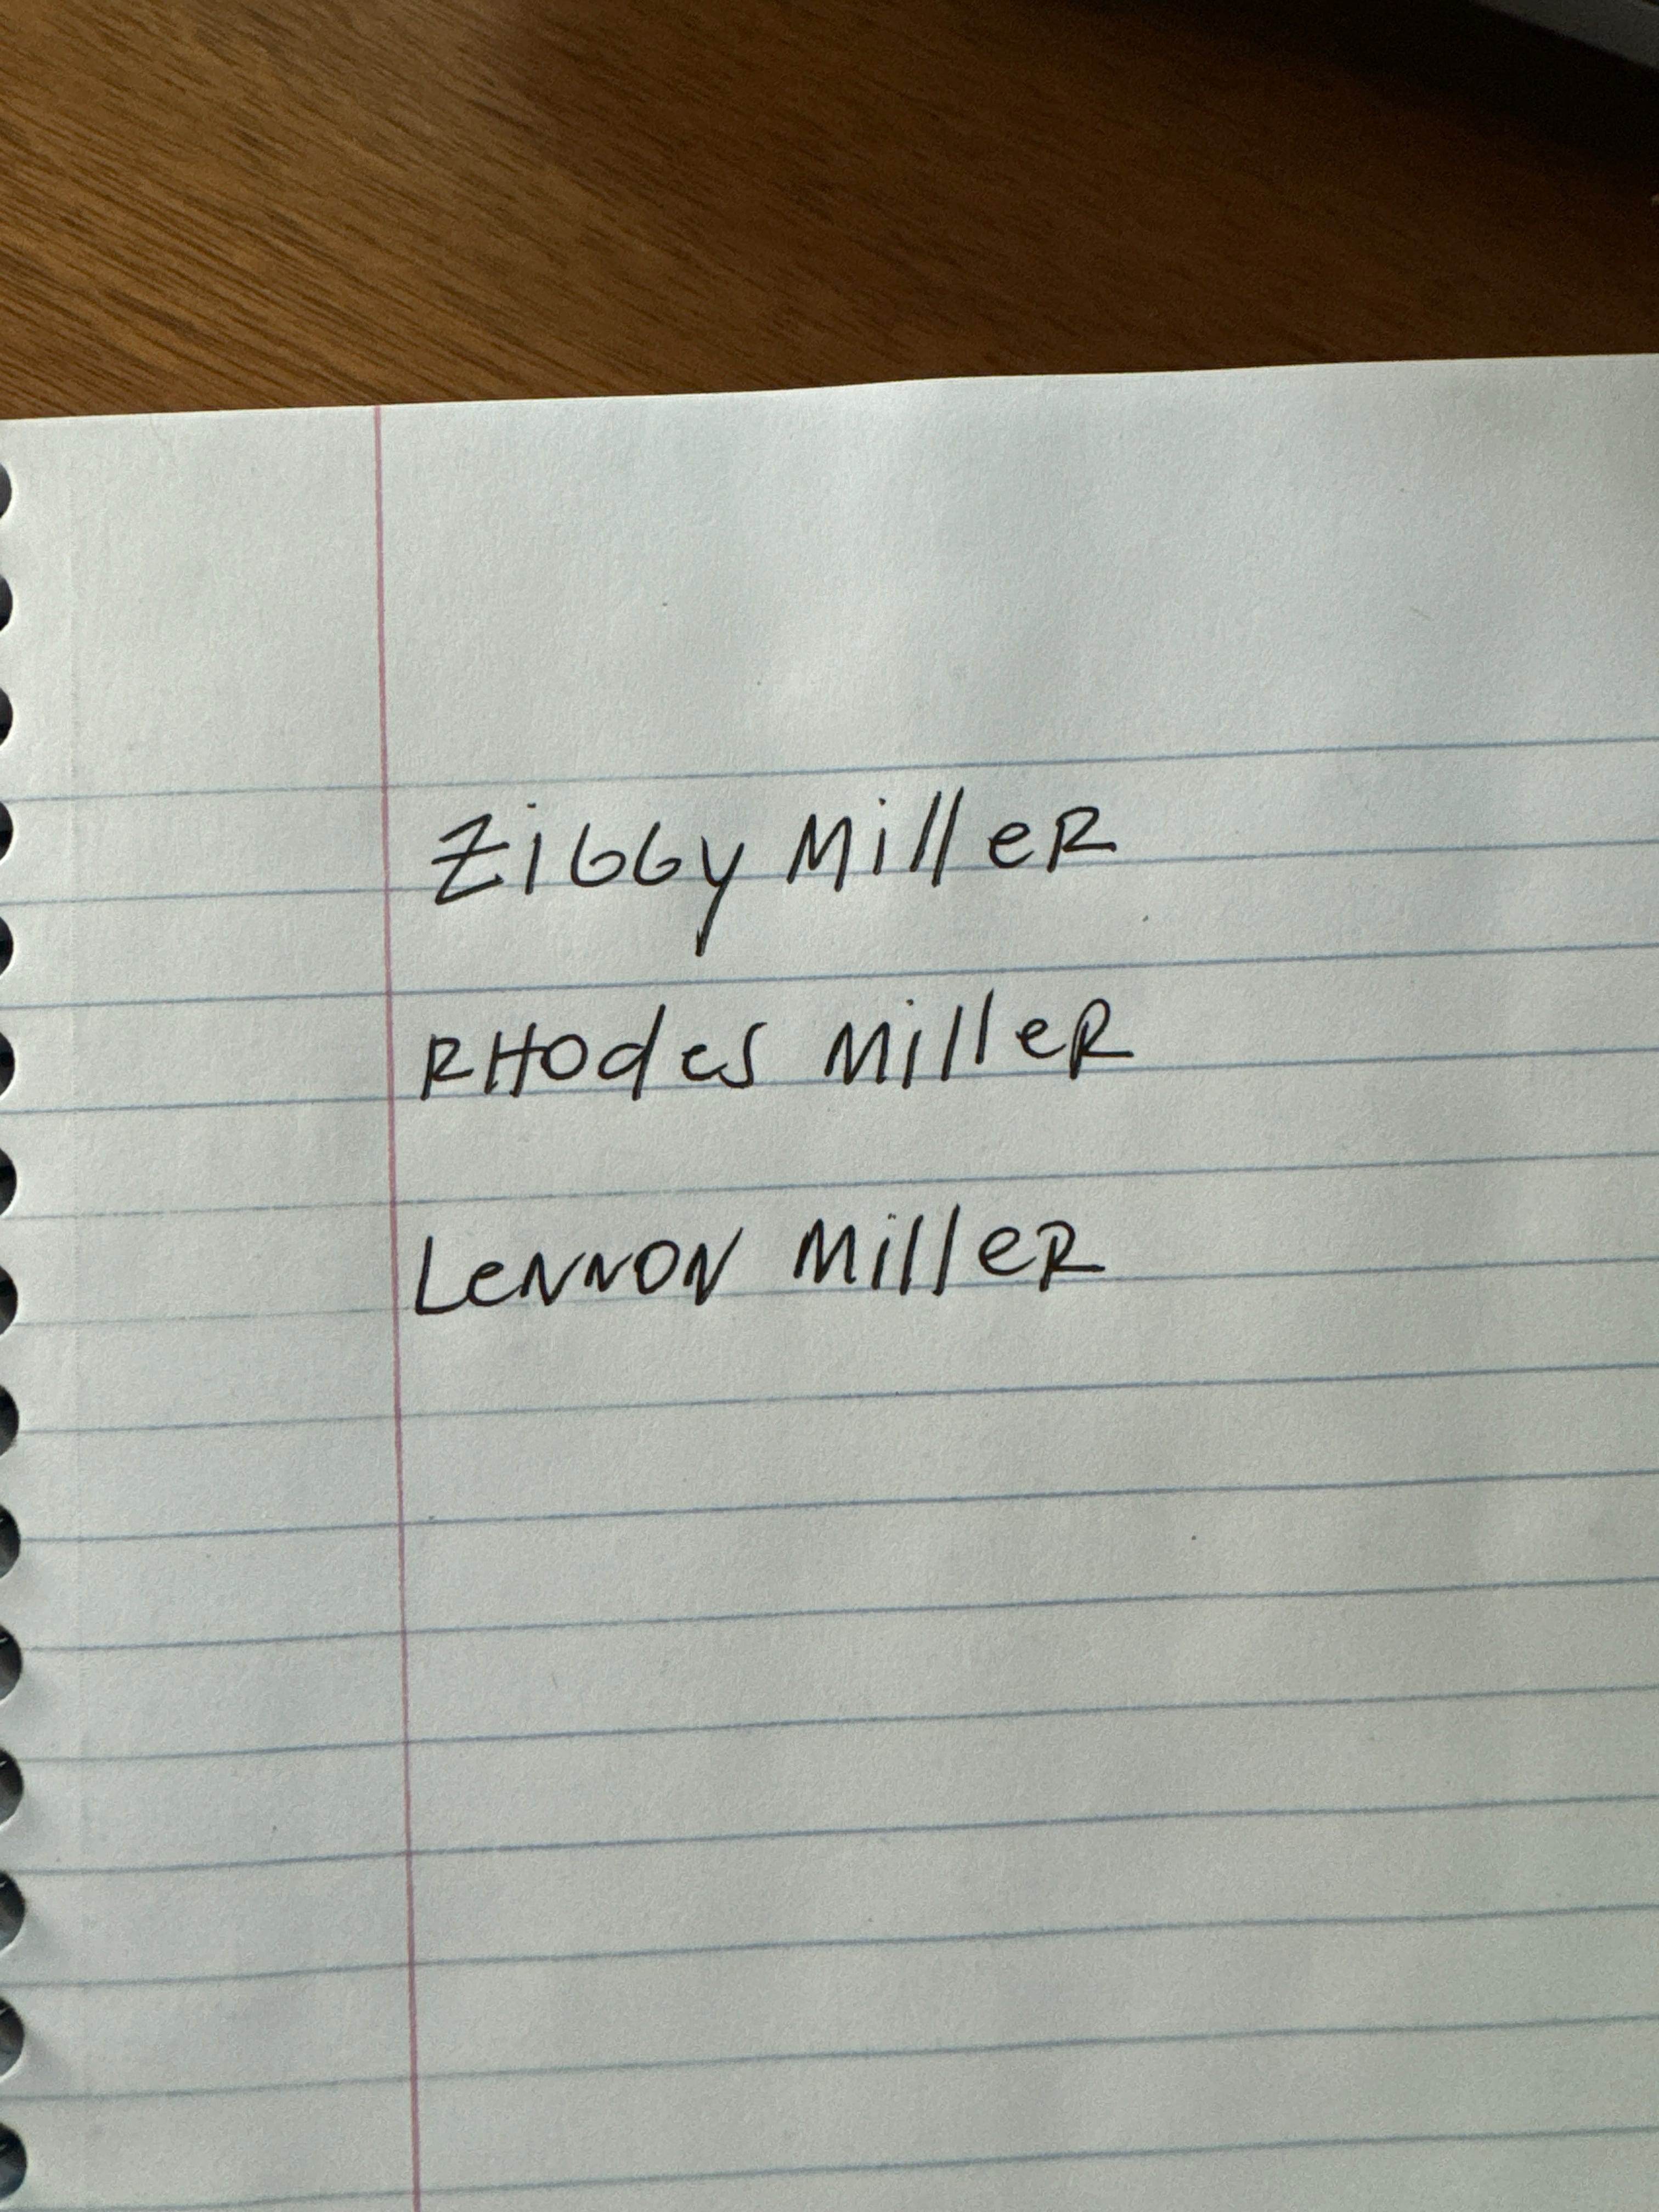 Ziggy Miller
RHodes Miller
Lennon Miller